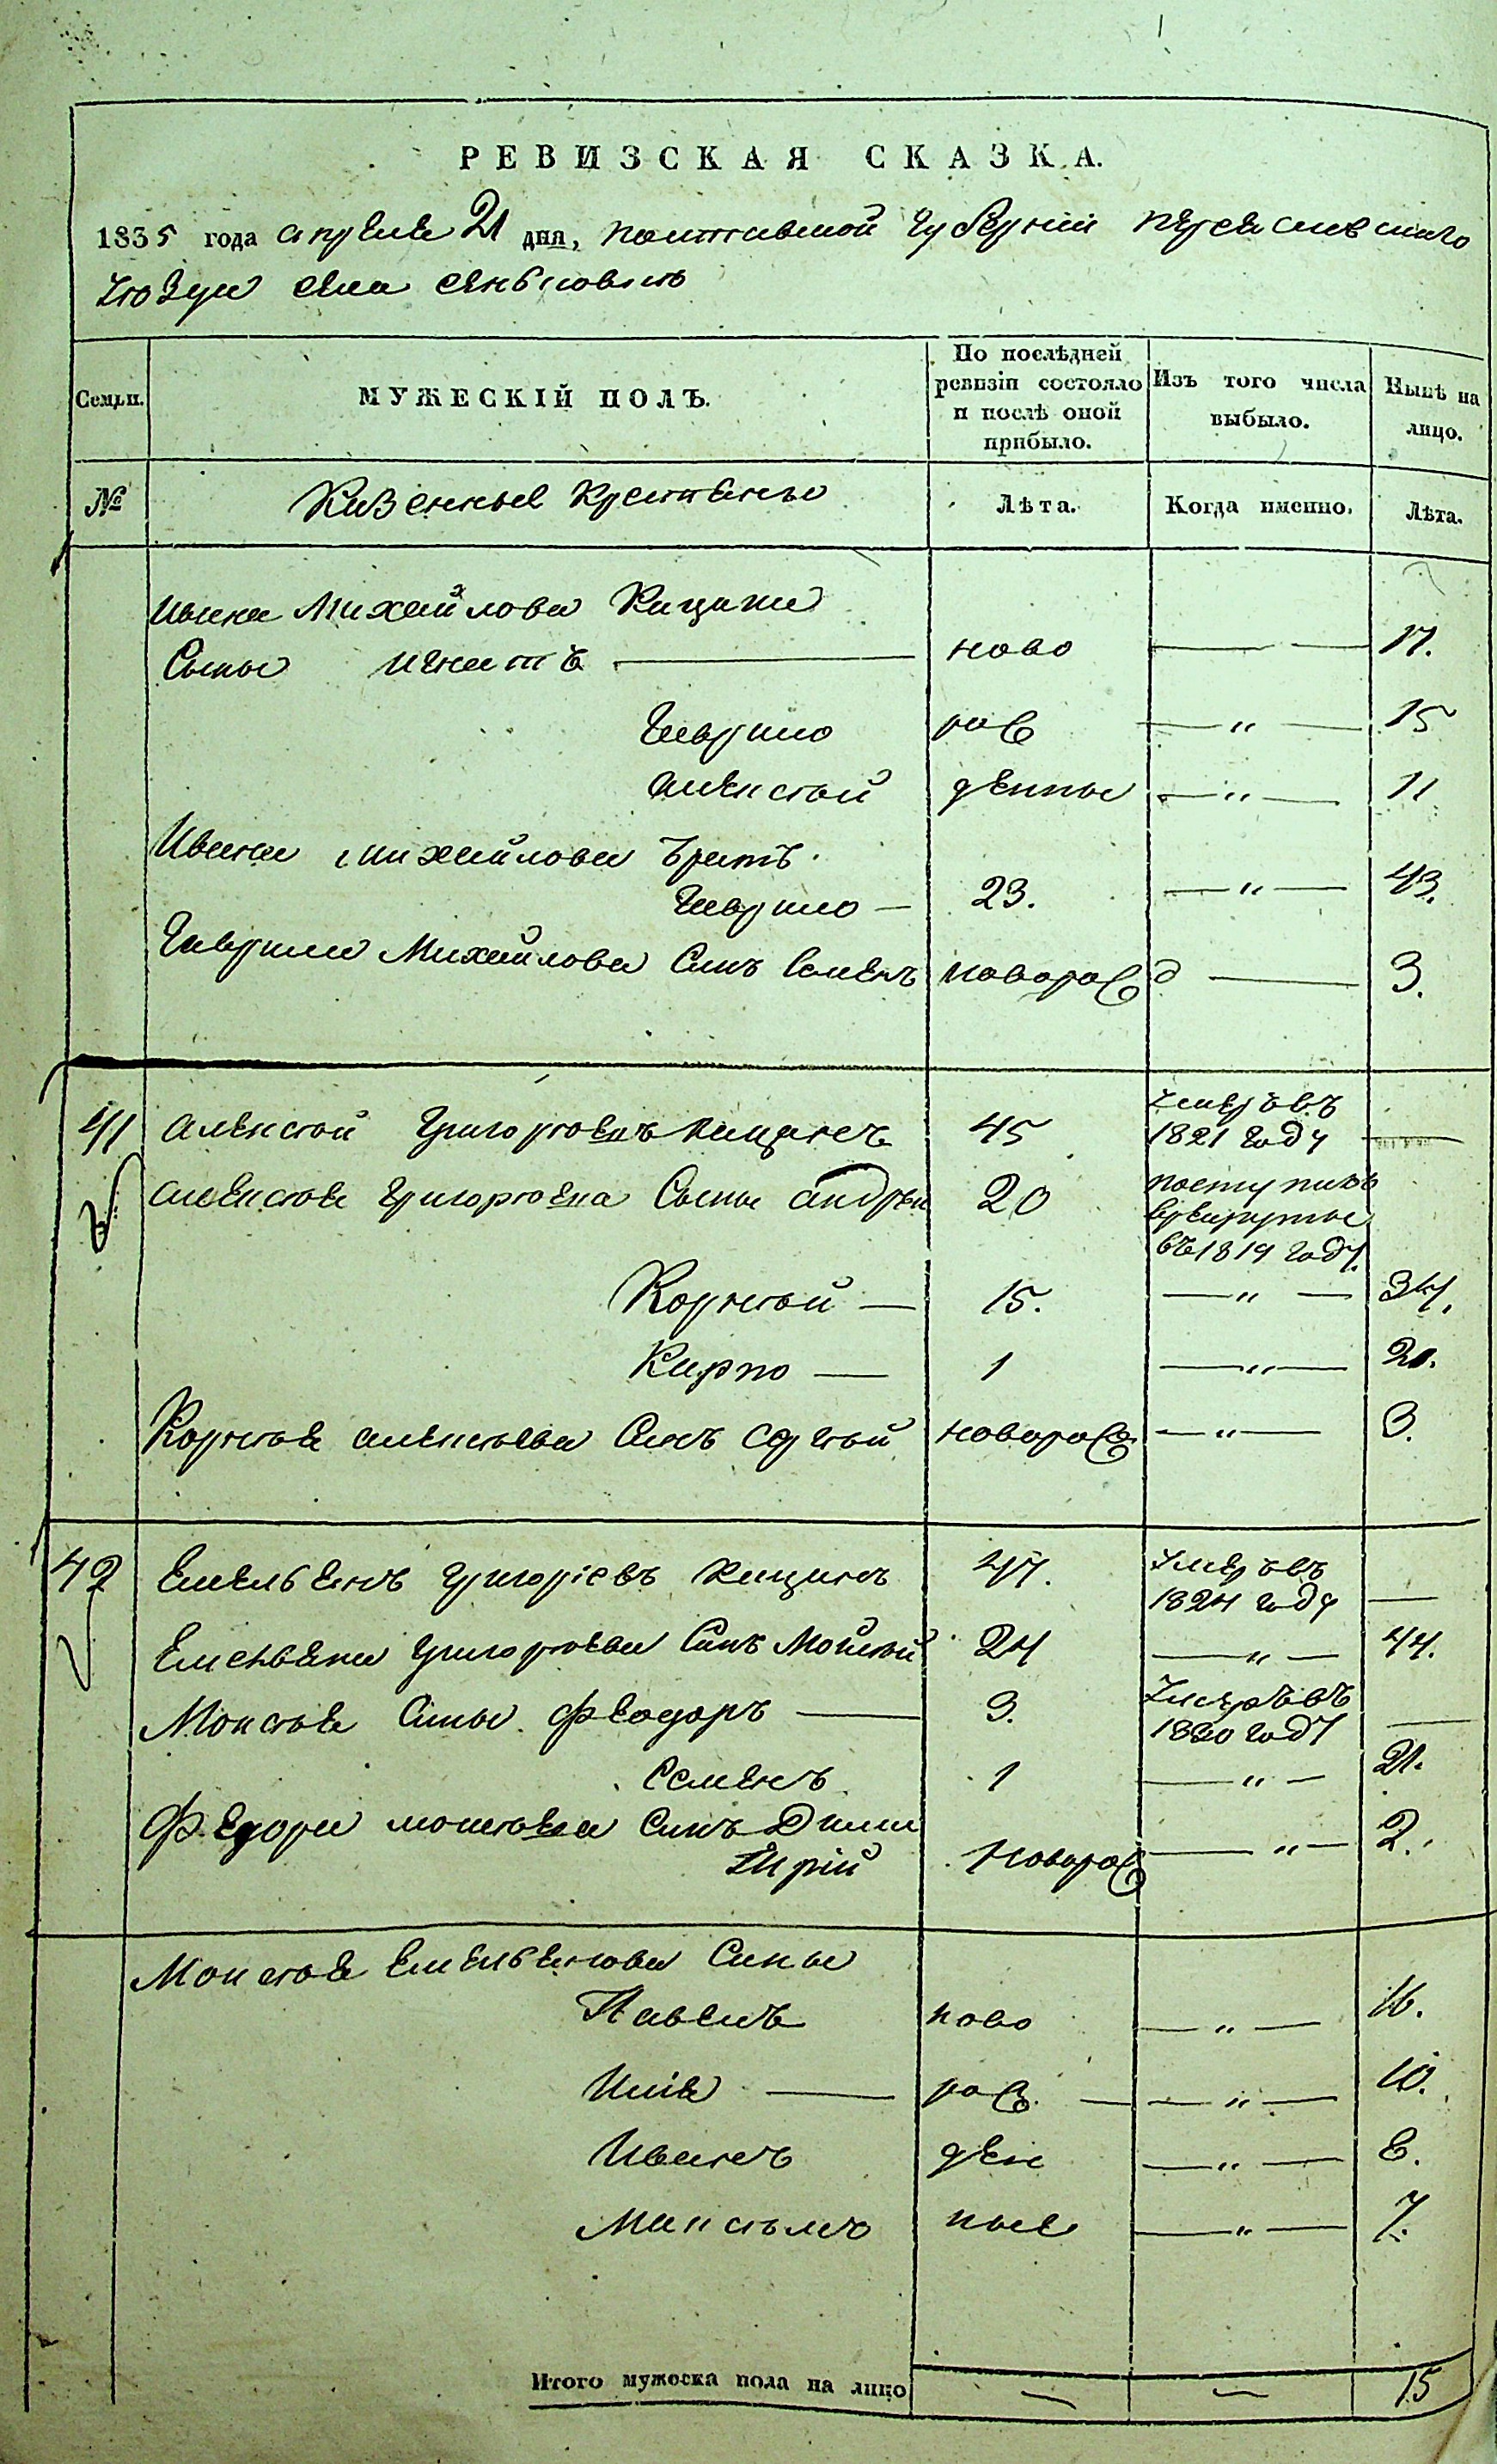 РЕВИЗСКАЯ СКАЗКА.
1835 года апреля 21 дня, полтавской губернии переяславскаго
уезда села сенковки
Семьи. МУЖЕСКІЙ ПОЛЪ. По послѣдней ревизіи состояло и послѣ оной прибыло. Изъ того числа выбыло. Нынѣ на лицо.
№ Казенные крестяне Лѣта. Когда именно. Лѣта.
Ивана Михайлова Кицана
Сыны игнатъ ново 17.
Гаврило рож 15
алексей денные 11
Ивана михайлова братъ
Гаврило — 23. — " — 43.
Гаврила Михайлова Синъ Семенъ новорожд 3.
41 алексей Григорьевъ кицанъ 45 умеръ въ 1821 году
алексея григорьева Сыны андрей 20 поступилъ врекруты въ 1819 году
Корней — 15. — " — 34.
Карпо — 1 — " — 20.
Корнея алексеева Синъ Сергей новорож — " — 3.
42 Емельянъ григоріевъ кицанъ 47. умеръ въ 1824 году —
Емельяна григорьева Синъ Мойсей 24 — " — 44.
Мойсея Сины феодоръ — 3. умеръ въ 1830 году —
Семенъ 1 — " — 21.
Федора мойсеева Синъ Дми
трій новорож — " — 2.
Мойсея Емельянова Сины
Павелъ ново — " — 16.
Илія — рож. — " — 10.
Иванъ ден — " — 8.
Максымъ ные — " — 7.
Итого мужеска пола на лицо — — 15